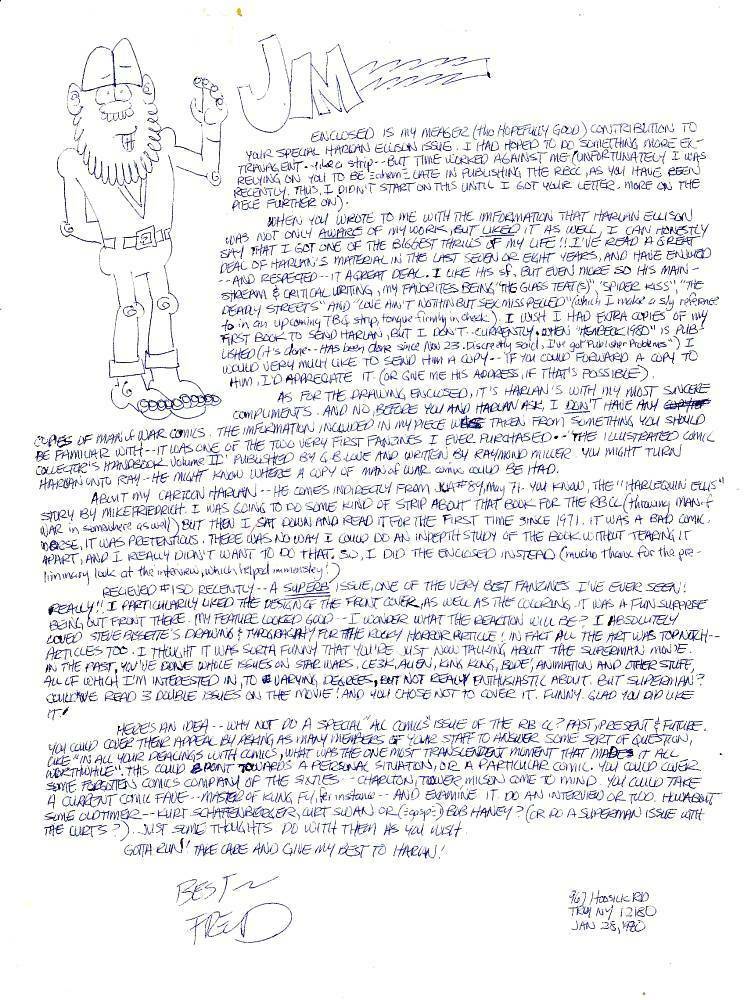 JM
ENCLOSED IS MY MEAGER (tho HOPEFULLY GOOD) CONTRIBUTION TO
YOUR SPECIAL HARLAN ELLISON ISSUE. I HAD HOPED TO DO SOMETHING MORE EX-
TRAVAGENT--like a strip--BUT TIME WORKED AGAINST ME (UNFORTUNATELY I WAS
RELYING ON YOU TO BE =ahem= LATE IN PUBLISHING THE RBCC, AS YOU HAVE BEEN
RECENTLY. THUS, I DIDN'T START ON THIS UNTIL I GOT YOUR LETTER. MORE ON THE
PIECE FURTHER ON).
WHEN YOU WROTE TO ME WITH THE IMFORMATION THAT HARLAN ELLISON
WAS NOT ONLY AWARE OF MY WORK, BUT LIKED IT AS WELL, I CAN HONESTLY
SAY THAT I GOT ONE OF THE BIGGEST THRILLS OF MY LIFE!! I'VE READ A GREAT
DEAL OF HARLAN'S MATERIAL IN THE LAST SEVEN OR EIGHT YEARS, AND HAVE ENJOYED
--AND RESPECTED--IT A GREAT DEAL. I LIKE HIS SF, BUT EVEN MORE SO HIS MAIN-
STREAM & CRITICAL WRITING, MY FAVORITES BEING "THE GLASS TEAT(S)", "SPIDER KISS", "THE
DEADLY STREETS" AND "LOVE AIN'T NOTHIN BUT SEX MISSPELLED" (which I make a sly reference
to in an upcoming TB@ strip, tongue firmly in cheek). I WISH I HAD EXTRA COPIES OF MY
FIRST BOOK TO SEND HARLAN, BUT I DON'T--CURRENTLY. WHEN "HEMBECK 1980" IS PUB-
LISHED (it's done--HAS been done since Nov 23. Discreetly said, I've got Publisher Problems") I
WOULD VERY MUCH LIKE TO SEND HIM A COPY--IF YOU COULD FORWARD A COPY TO
HIM, I'D APPRECIATE IT. (OR GIVE ME HIS ADDRESS, IF THAT'S POSSIBLE).
AS FOR THE DRAWING ENCLOSED, IT'S HARLAN'S WITH MY MOST SINCERE
COMPLIMENTS. AND NO, BEFORE YOU AND HARLAN ASK, I DON'T HAVE ANY
COPIES OF MAN of WAR COMICS. THE IMFORMATION INCLUDED IN MY PIECE WAS TAKEN FROM SOMETHING YOU SHOULD
BE FAMILIAR WITH--IT WAS ONE OF THE TWO VERY FIRST FANZINES I EVER PURCHASED--"THE ILLUSTRATED COMIC
COLLECTOR'S HANDBOOK VOLUME II" PUBLISHED BY G.B. LOVE AND WRITTEN BY RAYMOND MILLER. YOU MIGHT TURN
HARLAN ONTO RAY--HE MIGHT KNOW WHERE A COPY OF MAN of WAR comic COULD BE HAD.
ABOUT MY CARTOON HARLAN--HE COMES INDIRECTLY FROM JLA #89, May 71. YOU KNOW, THE "HARLEQUIN ELLIS"
STORY BY MIKE FRIEDRICH. I WAS GOING TO DO SOME KIND OF STRIP ABOUT THAT BOOK FOR THE RBCC (throwing MAN of
WAR in somewhere as well) BUT THEN I SAT DOWN AND READ IT FOR THE FIRST TIME SINCE 1971. IT WAS A BAD COMIC.
WORSE, IT WAS PRETENTIOUS. THERE WAS NO WAY I COULD DO AN INDEPTH STUDY OF THE BOOK WITHOUT TEARING IT
APART, AND I REALLY DIDN'T WANT TO DO THAT. SO, I DID THE ENCLOSED INSTEAD (mucho thanx for the pre-
liminary look at the interview, which helped immensley!)
RECIEVED #150 RECENTLY--A SUPERB ISSUE, ONE OF THE VERY BEST FANZINES I'VE EVER SEEN!
REALLY!! I PARTICULARLY LIKED THE DESIGN OF THE FRONT COVER, AS WELL AS THE COLORING. IT WAS A FUN SURPRISE
BEING OUT FRONT THERE. MY FEATURE LOOKED GOOD--I WONDER WHAT THE REACTION WILL BE? I ABSOLUTELY
LOVED STEVE BISSETTE'S DRAWING & TYPOGRAPHY FOR THE ROCKY HORROR ARTICLE! IN FACT ALL THE ART WAS TOP NOTCH--
ARTICLES TOO. I THOUGHT IT WAS SORTA FUNNY THAT YOU'RE JUST NOW TALKING ABOUT THE SUPERMAN MOVIE.
IN THE PAST, YOU'VE DONE WHOLE ISSUES ON STAR WARS, CE3K, ALIEN, KING KONG, BODE', ANIMATION AND OTHER STUFF,
ALL OF WHICH I'M INTERESTED IN, TO VARYING DEGREES, BUT NOT REALLY ENTHUSIASTIC ABOUT. BUT SUPERMAN?
COULD'VE READ 3 DOUBLE ISSUES ON THE MOVIE! AND YOU CHOSE NOT TO COVER IT. FUNNY. GLAD YOU DID LIKE
IT!
HERE'S AN IDEA--WHY NOT DO A SPECIAL "ALL COMICS" ISSUE OF THE RBCC? PAST, PRESENT & FUTURE.
YOU COULD COVER THEIR APPEAL BY ASKING AS MANY MEMBERS OF YOUR STAFF TO ANSWER SOME SORT OF QUESTION,
LIKE "IN ALL YOUR DEALINGS WITH COMICS, WHAT WAS THE ONE MOST TRANSCENDENT MOMENT THAT MADE IT ALL
WORTHWHILE". THIS COULD POINT TOWARDS A PERSONAL SITUATION, OR A PARTICULAR COMIC. YOU COULD COVER
SOME FORGOTTEN COMICS COMPANY OF THE SIXTIES--CHARLTON, TOWER, MILSON COME TO MIND. YOU COULD TAKE
A CURRENT COMIC FAVE--MASTER OF KUNG FU, for instance--AND EXAMINE IT. DO AN INTERVIEW OR TWO. HOW ABOUT
SOME OLDTIMER--KURT SCHAFFENBERGER, CURT SWAN OR (=gasp=) BOB HANEY? (OR DO A SUPERMAN ISSUE WITH
THE CURTS?). JUST SOME THOUGHTS. DO WITH THEM AS YOU WISH.
GOTTA RUN! TAKE CARE AND GIVE MY BEST TO HARLAN!
BEST~
FRED
967 HOOSICK RD
TROY NY 12180
JAN 28, 1980